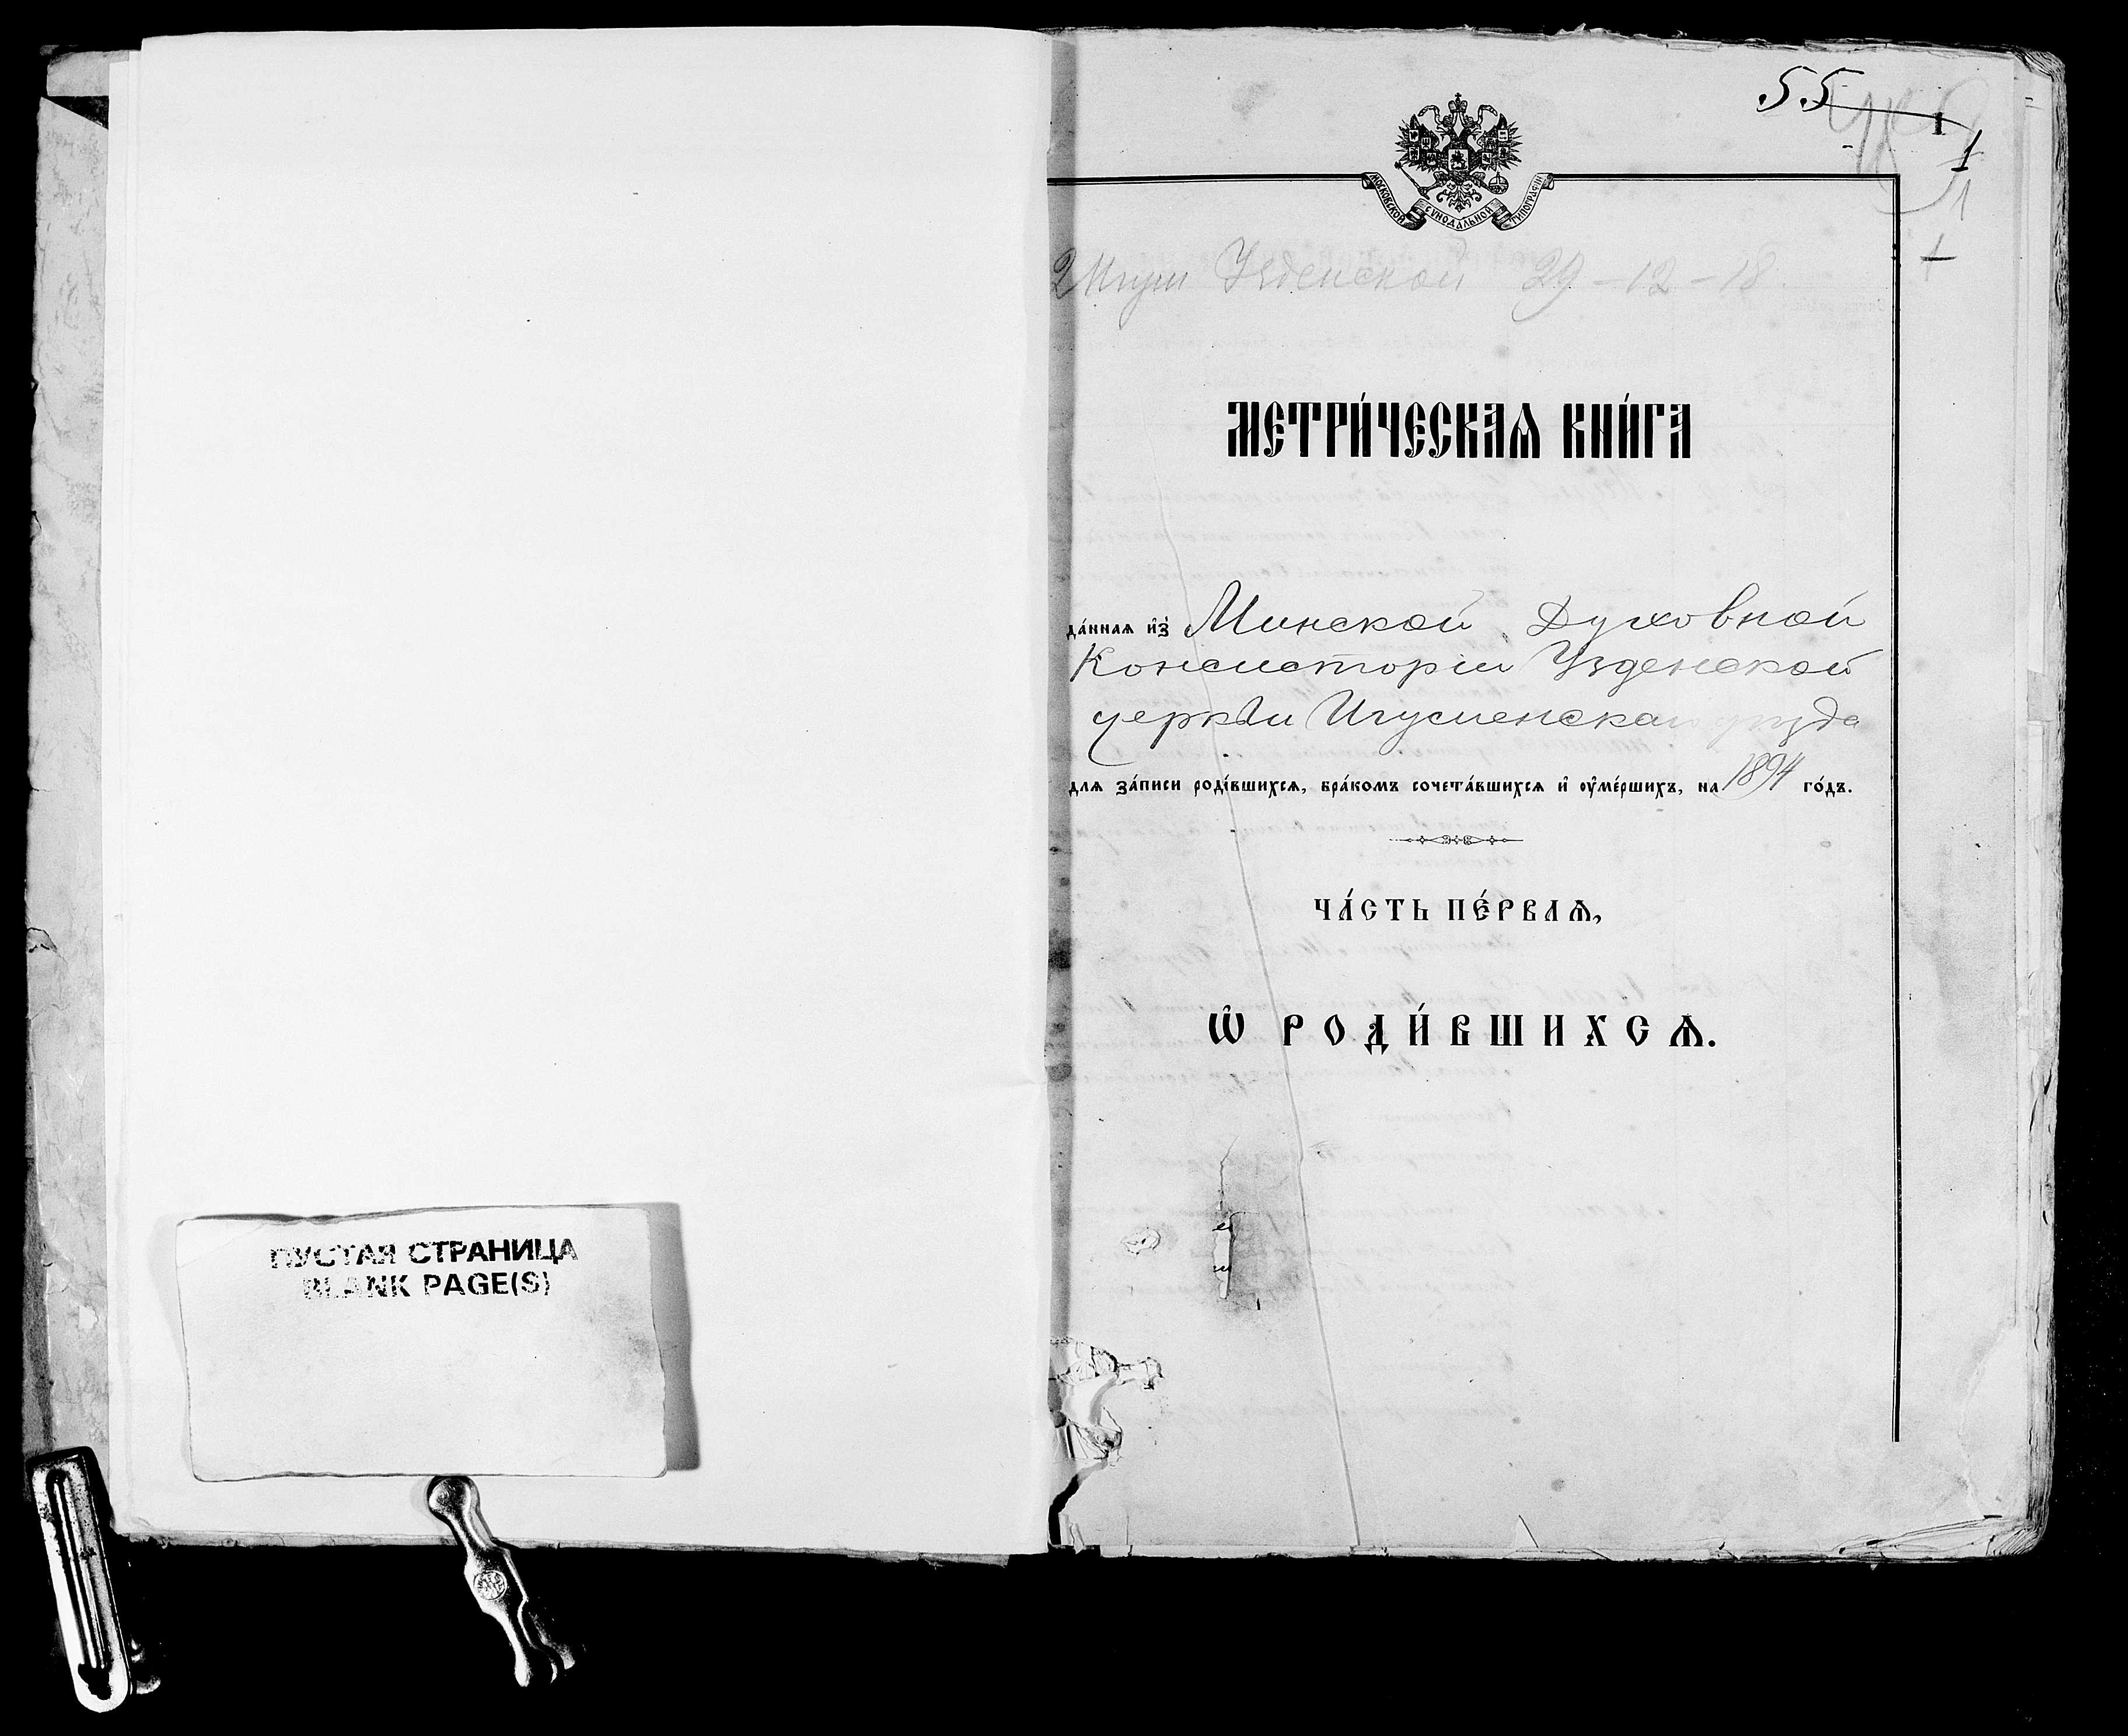 ПУСТАЯ СТРАНИЦА
BLANK PAGE(S)
55
1
1
1
МОСКОВСКОЙ СѴНОДАЛЬНОЙ ТИПОГРАФІИ
2 Игум Узденской 29-12-18
МЕТРИ́ЧЕСКАѦ КНИ́ГА
да́ннаѧ и҆з̾ Минской Духовной
Консисторіи Узденской
церкви Игуменскаго уѣзда
длѧ за́писи роди́вшихсѧ, бра́комъ сочета́вшихсѧ и҆ ᲂу҆ме́ршихъ, на 1894 го́дъ.
ЧА́СТЬ ПЕ́РВАѦ,
Ѡ҆ РОДИ́ВШИХСѦ.